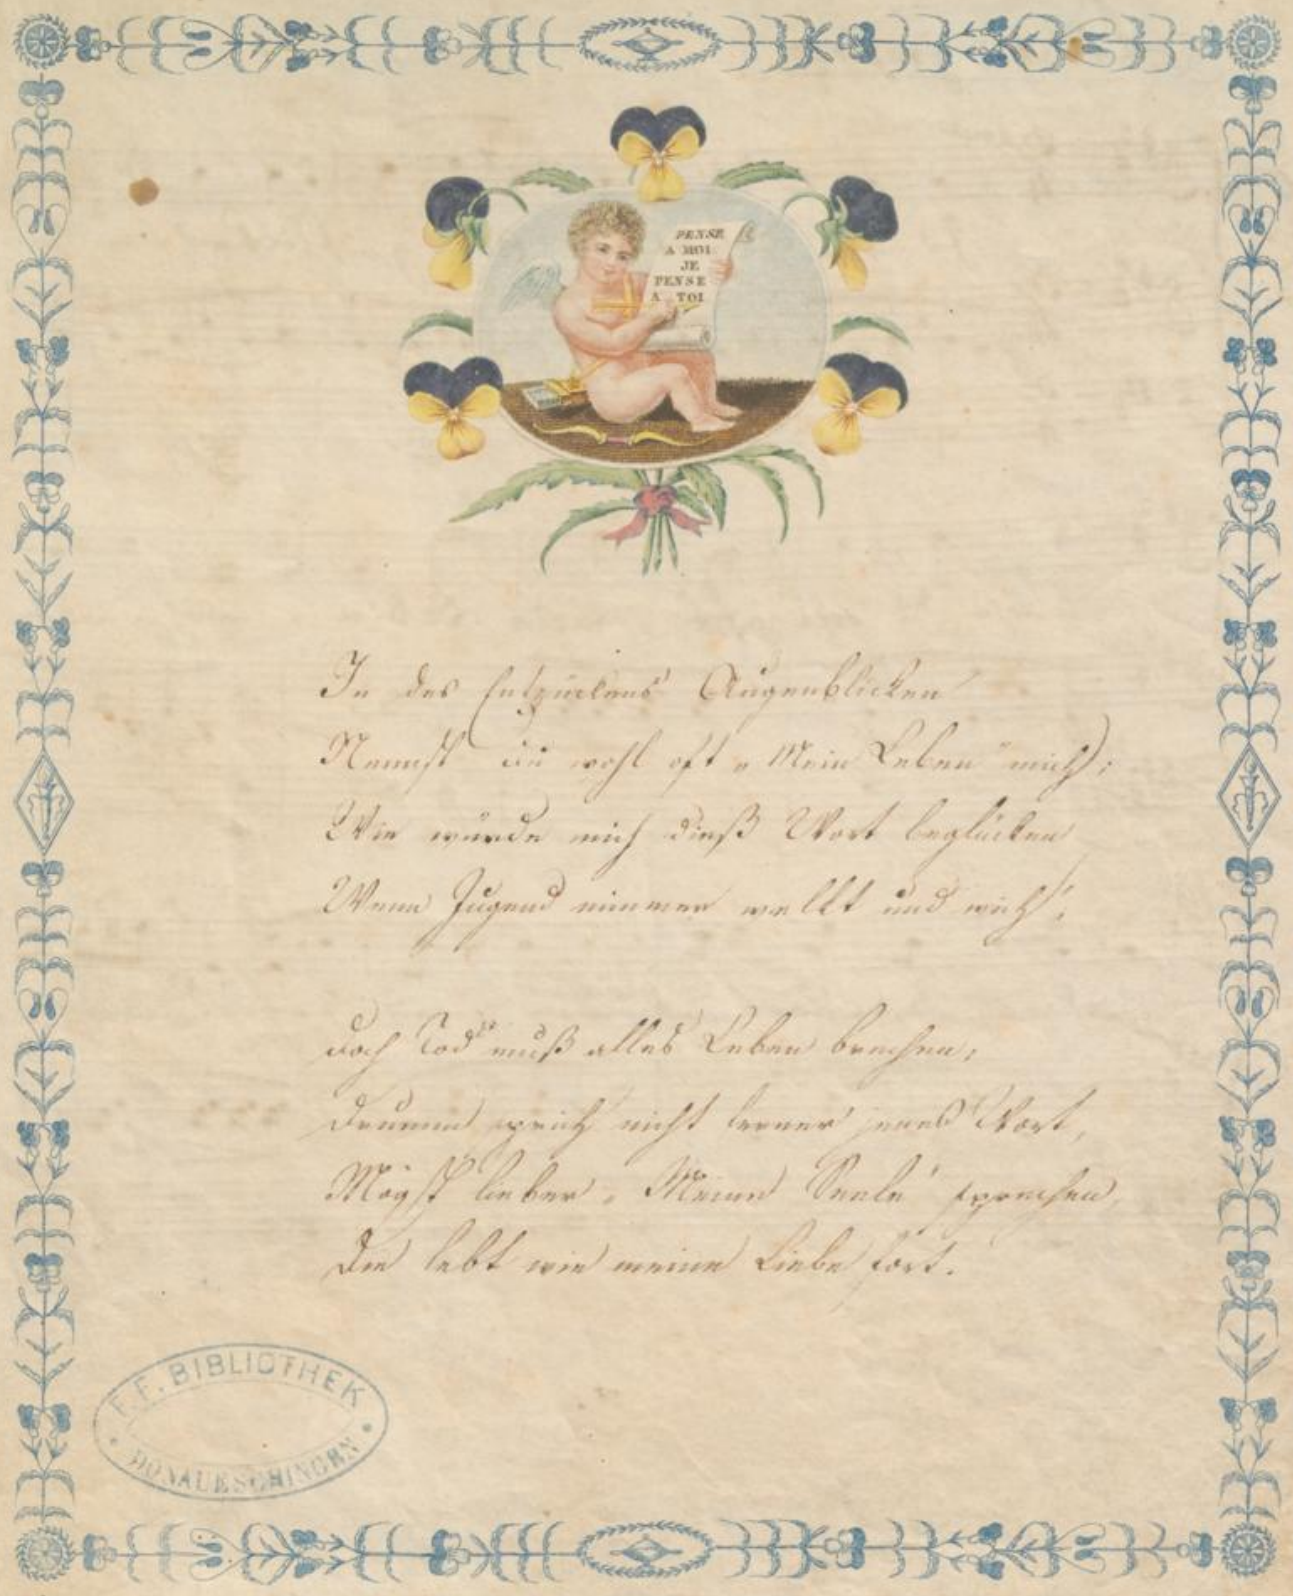 PENSE
A MOI
JE
PENSE
A TOI
In des Entzückens Augenblicken
Nennst du wohl oft „Mein Leben" mich;
Wie würde mich dieß Wort beglücken
Wenn Jugend nimmer welkt und wich!
Doch Tod muß alles Leben brechen,
Drumm sprich nicht ferner jenes Wort,
Mögst lieber „Meine Seele" sprechen,
Die lebt wie meine Liebe fort.
F. F. BIBLIOTHEK
DONAUESCHINGEN